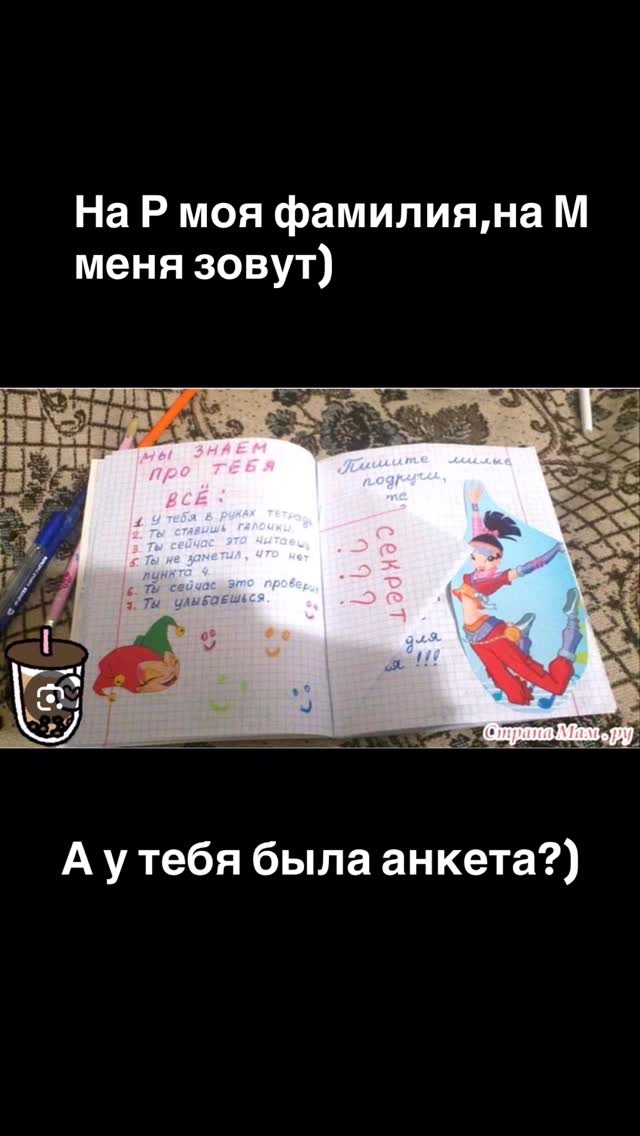 На Р моя фамилия,на М
меня зовут)
МЫ ЗНАЕМ
ПРО ТЕБЯ
ВСЁ:
1. У тебя в руках тетрадь
2. Ты ставишь галочки.
3. Ты сейчас это читаешь
5. Ты не заметил, что нет
пункта 4.
6. Ты сейчас это провери
7. Ты улыбаешься.
Пишите милые
подруги,
те
секрет
? ? ?
для
я !!!
Страна Мам.ру
А у тебя была анкета?)